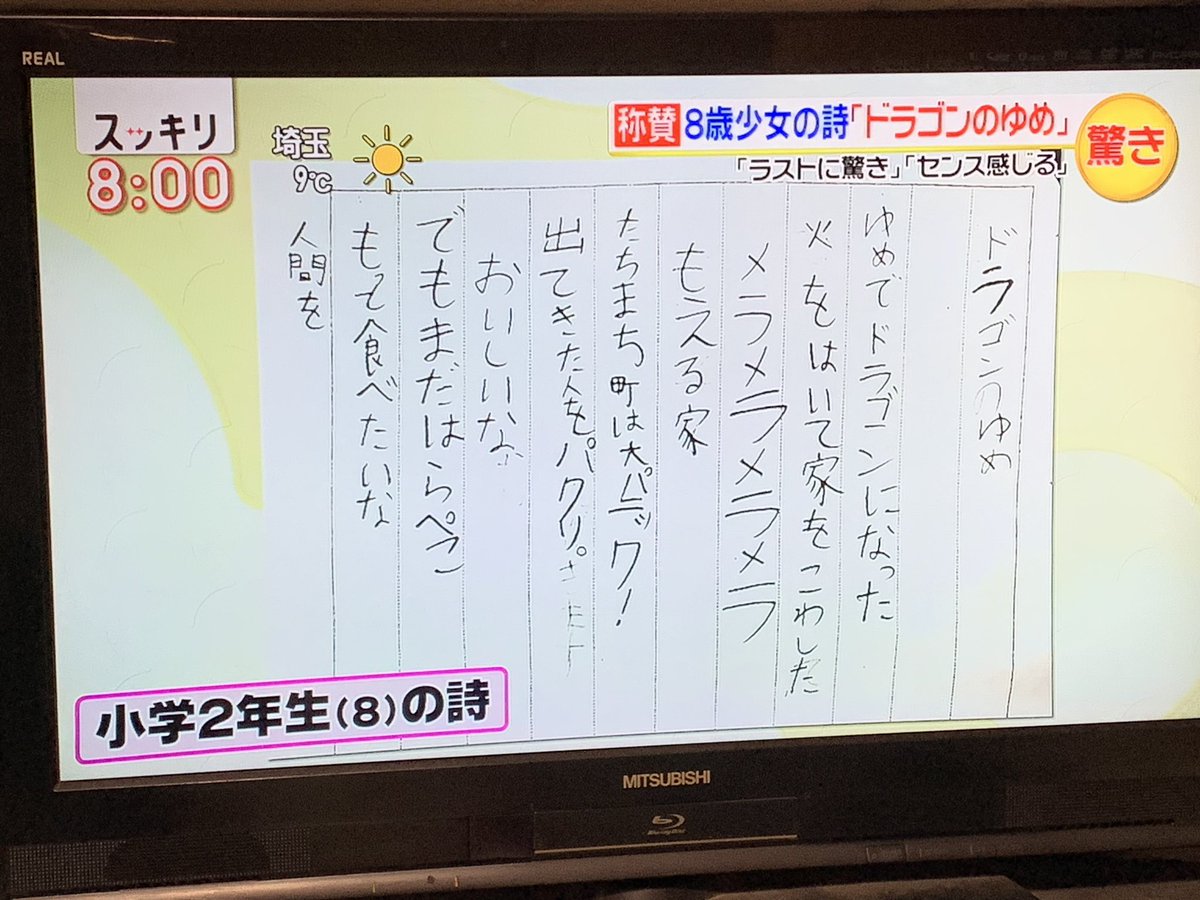 REAL
スッキリ
8:00
埼玉
9℃
称賛 8歳少女の詩「ドラゴンのゆめ」
「ラストに驚き」「センス感じる」
驚き
ドラゴンのゆめ
ゆめでドラゴンになった
火をはいて家をこわした
メラメラメラメラ
もえる家
たちまち町は大パニック!
出てきた人をパクリ。
おいしいな
でもまだはらぺこ
もっと食べたいな
人間を
小学2年生(8)の詩
MITSUBISHI
Blu-ray Disc